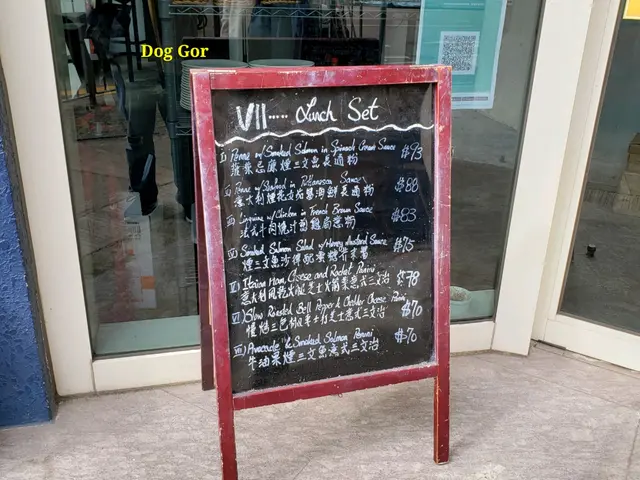 Dog Gor
VII---- Lunch Set
I) Penne w/ Smoked Salmon in Spinach Cream Sauce $93
菠菜忌廉煙三文魚長通粉
II) Penne w/ Seafood in Sauce $88
意大利煙花女茄醬海鮮長通粉
III) Linguine w/ Chicken in French Brown Sauce $83
法式牛肉燒汁雞扁意粉
IV) Smoked Salmon Salad w/ Honey Mustard Sauce $75
煙三文魚沙律配蜜糖芥末醬
V) Italian Ham, Cheese and Rocket Panini $78
意大利風乾火腿芝士火箭菜意式三文治
VI) Slow Roasted Bell Pepper & Cheddar Cheese Panini $70
慢烤三色甜椒車打芝士意式三文治
VII) Avocado & Smoked Salmon Panini $70
牛油果煙三文魚意式三文治